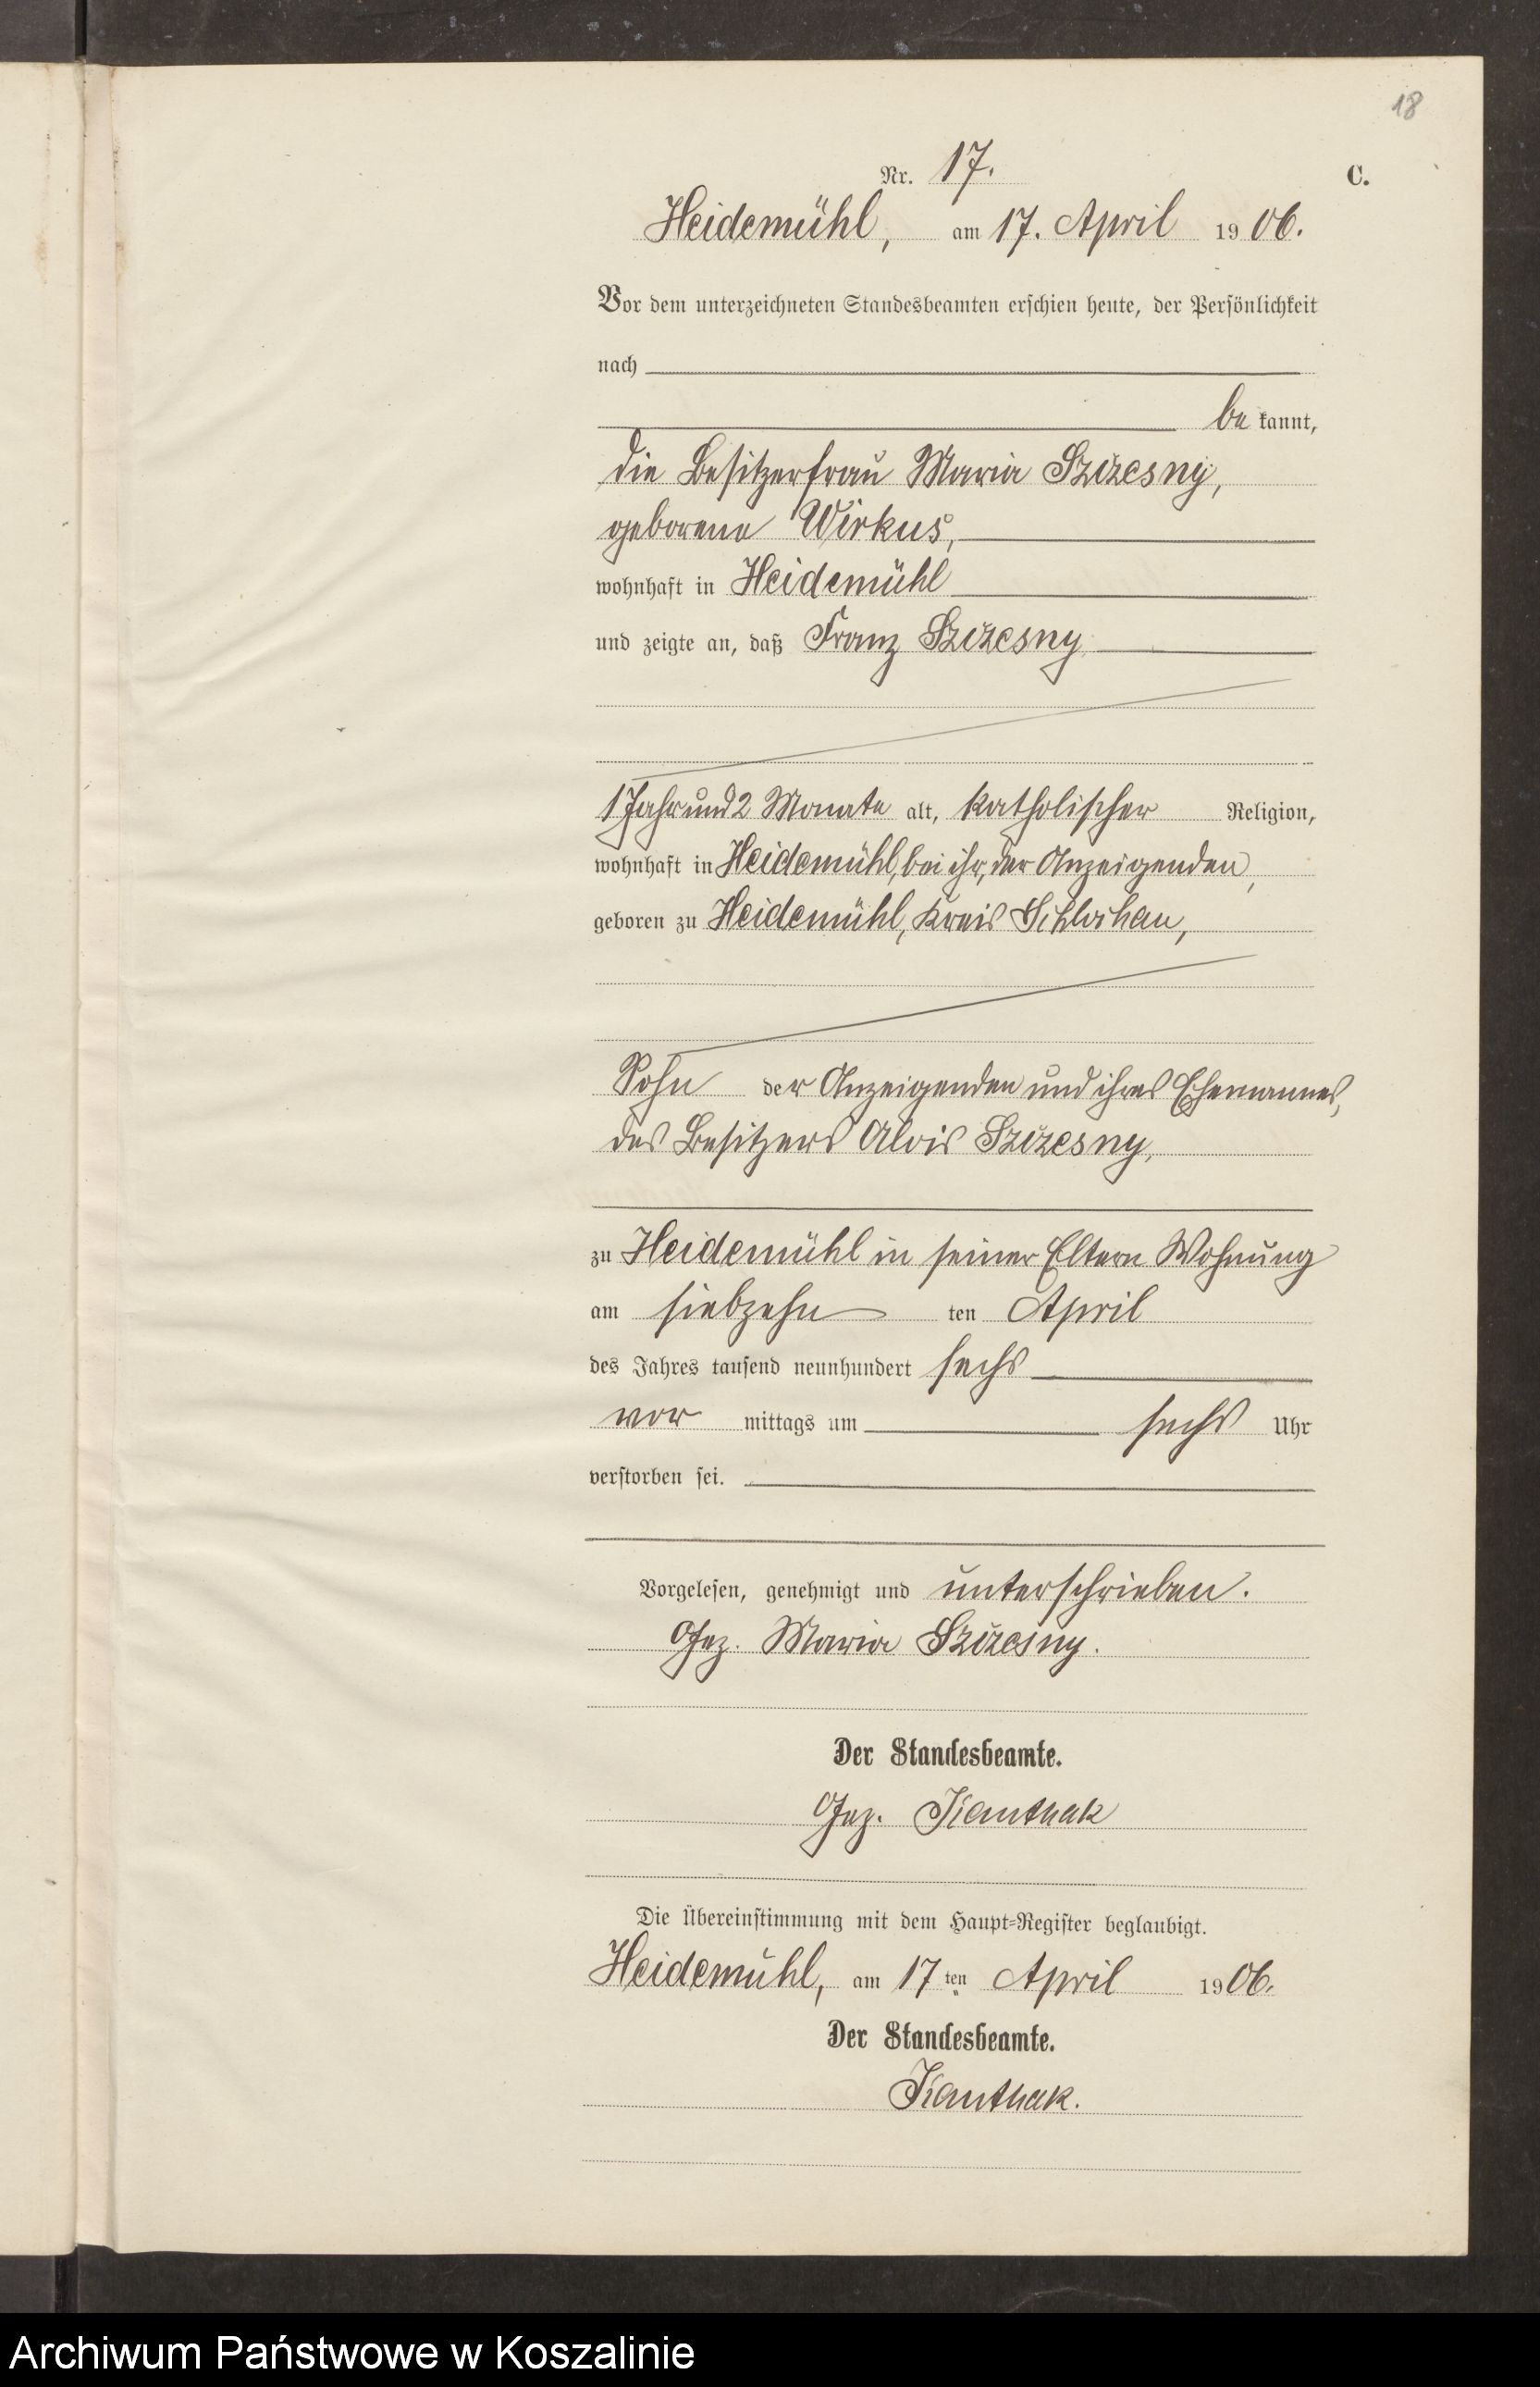 18
Nr. 17.
C.
Heidemühl, am 17. April 1906.
Vor dem unterzeichneten Standesbeamten erschien heute, der Persönlichkeit
nach
be kannt,
die Besitzerfrau Maria Szczesny,
geborene Wirkus,
wohnhaft in Heidemühl
und zeigte an, daß Franz Szczesny
1 Jahr und 2 Monate alt, katholischer Religion,
wohnhaft in Heidemühl, bei ihr, der Anzeigenden,
geboren zu Heidemühl, Kreis Schlochau,
Sohn der Anzeigenden und ihres Ehemannes,
des Besitzers Alois Szczesny,
zu Heidemühl in seiner Eltern Wohnung
am siebzehn ten April
des Jahres tausend neunhundert sechs
vor mittags um sechs Uhr
verstorben sei.
Vorgelesen, genehmigt und unterschrieben.
Gez. Maria Szczesny.
Der Standesbeamte.
Gez. Kanthak
Die Übereinstimmung mit dem Haupt-Register beglaubigt.
Heidemühl, am 17ten April 1906.
Der Standesbeamte.
Kanthak.
Archiwum Państwowe w Koszalinie